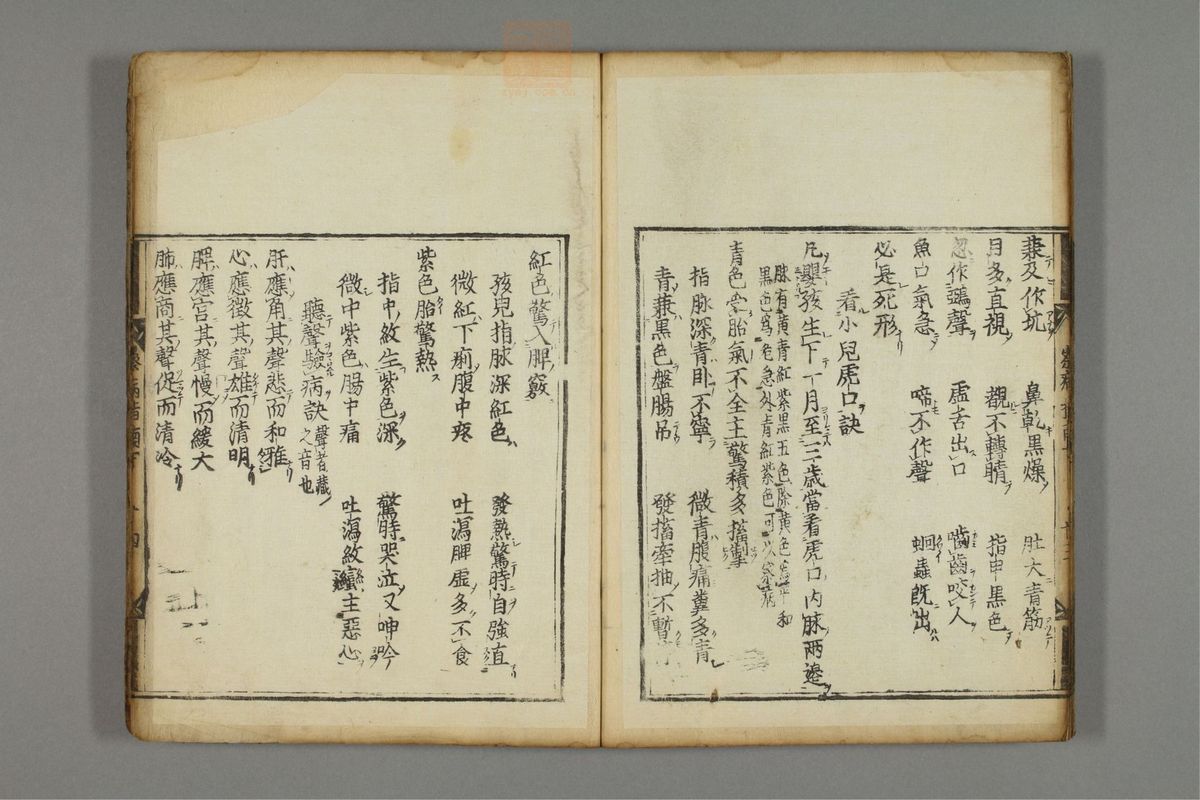 兼及作坑　鼻乾黒燥　肚大青筋
目多直視　覩不轉睛　指甲黒色
忽作鵶聲　虚舌出口　嚙齒咬人
魚口氣急　啼不作聲　蛔蟲既出
必是死形
看小兒虎口訣
凡嬰孩生下一月至三歳當看虎口内脉兩邊
脉有黄青紅紫黒五色除黄色爲平和
黒色爲危急外青紅紫色可以察病
青色受胎氣不全主驚積多搐掣
指脉深青卧不寧　微青腹痛糞多青
青兼黒色盤腸吊　發搐牽抽不暫
紅色驚入脾竅
孩兒指脉深紅色　發熱驚時自強直
微紅下痢腹中疼　吐瀉脾虚多不食
紫色胎驚熱
指中紋生紫色深　驚時哭泣又呻吟
微中紫色腸中痛　吐瀉紋纏主惡心
聽聲驗病訣 聲者藏之音也
肝應角其聲悲而和雅
心應徴其聲雄而清明
脾應宮其聲慢而緩大
肺應商其聲促而清冷